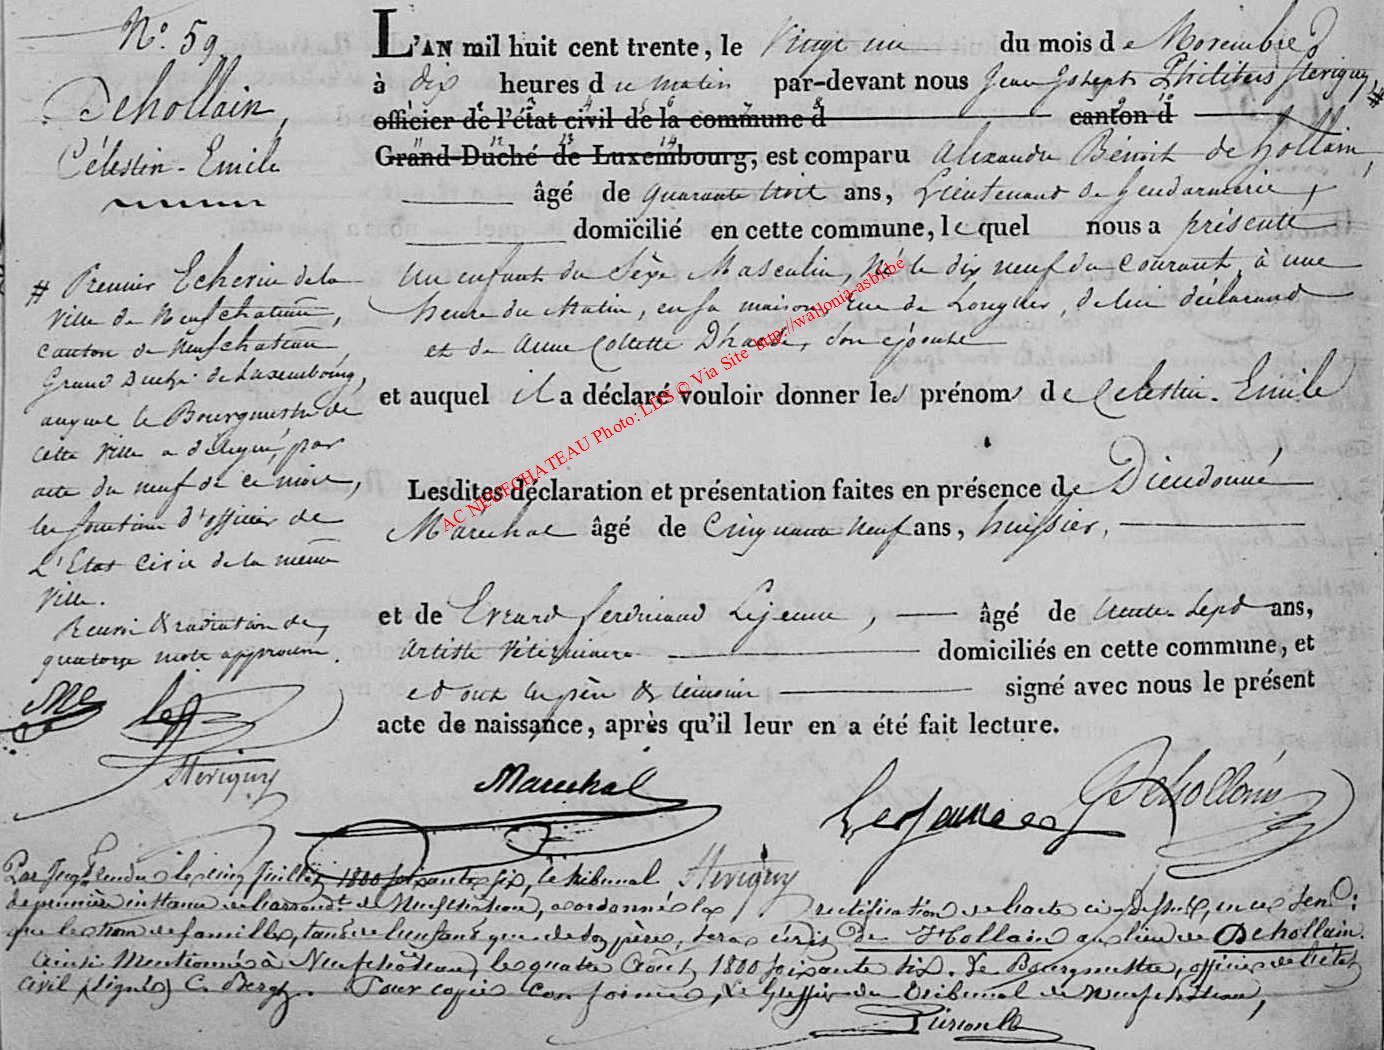 N.° 59
Dehollain,
Célestin-Emile
L'AN mil huit cent trente, le Vingt un du mois de Novembre
à dix heures du matin par-devant nous Jean Joseph Stévigny, #
officier de l'état civil de la commune d canton d
Grand-Duché de Luxembourg, est comparu Alexandre Benoit dehollain,
âgé de quarante trois ans, Lieutenant de Gendarmerie,
domicilié en cette commune, lequel nous a présenté
un enfant du Sèxe Masculin, Né le dix neuf du Courant, à une
heure du Matin, en sa maison, rue de Longlier, de lui déclarant
et de Anne Collette son épouse
et auquel il a déclaré vouloir donner les prénoms de Celestin-Emile
Lesdites déclaration et présentation faites en présence de Dieudonné
Maréchal âgé de Cinquante Neuf ans, huissier,
et de Evrard ferdinand Lejeune, âgé de trente Sept ans,
Artiste Vétérinaire domiciliés en cette commune, et
et ont les père & témoins signé avec nous le présent
acte de naissance, après qu'il leur en a été fait lecture.
# Premier Echevin de la
Ville de Neufchateau,
canton de Neufchateau
Grand Duché de Luxembourg,
auquel le Bourgmestre de
cette Ville a délégué, par
acte du neuf de ce mois,
les fonctions d'officier de
L'Etat Civil de la même
Ville.
Renvoi & radiation de
quatorze mots approuvés.
Stévigny
Maréchal
Lejeune
Dehollain
Stévigny
Par Jugt rendu le cinq Juillet 1800 soixante six, le tribunal
de première instance de l'arrondt de Neufchateau, a ordonné la rectification de l'acte ci-dessus, en ce sens:
que le nom de famille, tant de l'enfant que de son père, sera écrit De Hollain au lieu de Dehollain.
Ainsi Mentionné à Neufchâteau, le quatre Août 1800 soixante six. Le Bourgmestre, officier de l'état
civil, (signé) C. Bergh. Pour copie conforme, Le Greffier du Tribunal de Neufchâteau,
AC NEUFCHATEAU Photo: LDS © Via Site http://wallonia-asbl.be